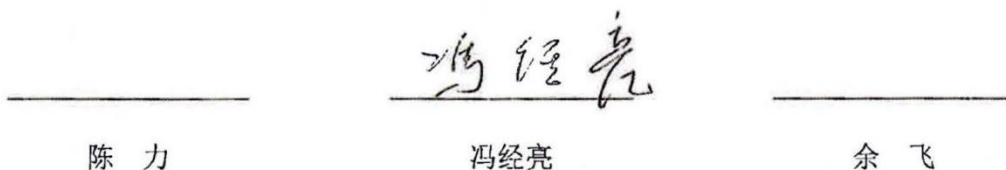 冯经亮
陈 力 冯经亮 余 飞